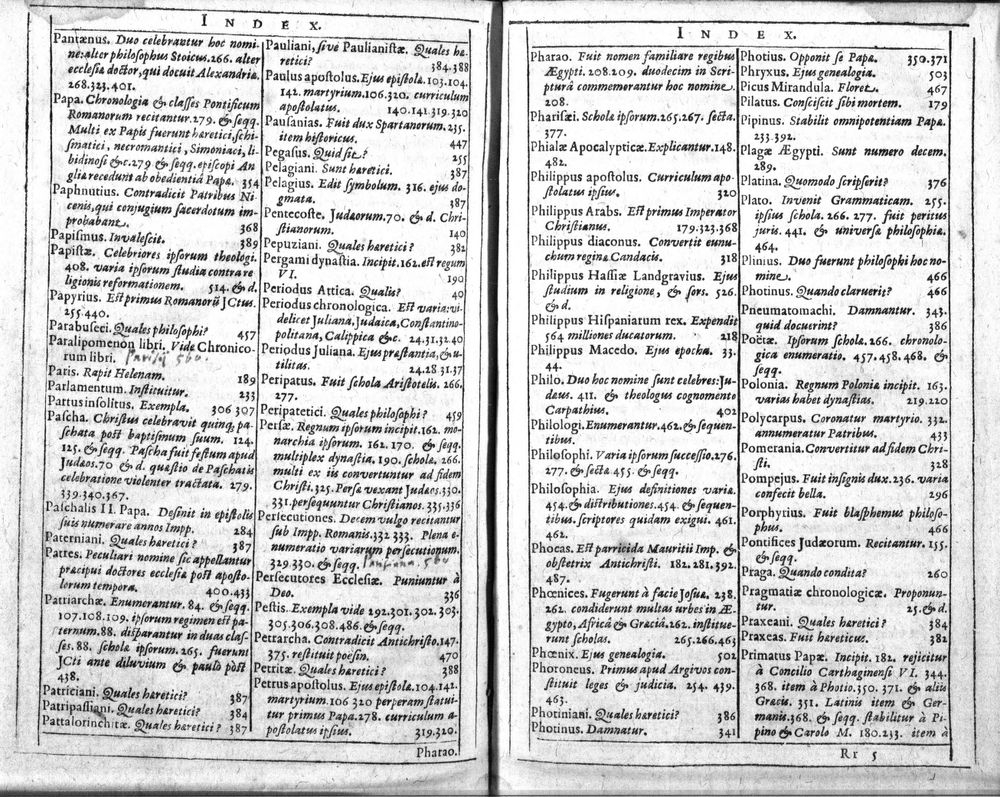 INDEX.
Pantænus. Duo celebrantur hoc nomi-
ne: alter philosophus Stoicus. 266. alter
ecclesiæ doctor, qui docuit Alexandriæ.
268.323.401.
Papa. Chronologia & classes Pontificum
Romanorum recitantur. 279. & seqq.
Multi ex Papis fuerunt hæretici, schi-
smatici, necromantici, Simoniaci, li-
bidinosi &c. 279 & seqq. episcopi An-
gliæ recedunt ab obedientiâ Papæ. 354
Paphnutius. Contradicit Patribus Ni-
cenis, qui conjugium sacerdotum im-
probabant. 368
Papismus. Invalescit. 389
Papistæ. Celebriores ipsorum theologi.
408. varia ipsorum studia contra re-
ligionis reformationem. 514. & d.
Papyrius. Est primus Romanorũ JCtus.
255.440.
Parabuseci. Quales philosophi? 457
Paralipomenon libri. Vide Chronico-
rum libri.
Paris. Rapit Helenam. 189
Parlamentum. Instituitur. 233
Partus insolitus. Exempla. 306 307
Pascha. Christus celebravit quinq; pa-
schata post baptismum suum. 124.
125. & seqq. Pascha fuit festum apud
Judæos. 70 & d. quæstio de Paschatis
celebratione violenter tractata. 279.
339.340.367.
Paschalis II. Papa. Desinit in epistolis
suis numerare annos Impp. 284
Paterniani. Quales hæretici? 387
Patres. Peculiari nomine sic appellantur
præcipui doctores ecclesiæ post aposto-
lorum tempora. 400.433
Patriarchæ. Enumerantur. 84. & seqq.
107.108.109. ipsorum regimen est pa-
ternum. 88. disparantur in duas clas-
ses. 88. schola ipsorum. 265. fuerunt
JCti ante diluvium & paulò post
438.
Patriciani. Quales hæretici? 387
Patripassiani. Quales hæretici? 384
Pattalorinchitæ. Quales hæretici? 387
Pauliani, sive Paulianistæ. Quales hæ-
retici? 384.388
Paulus apostolus. Ejus epistolæ. 103.104.
142. martyrium. 106.320. curriculum
apostolatus. 140.141.319.320
Pausanias. Fuit dux Spartanorum. 235.
item historicus. 447
Pegasus. Quid sit? 255
Pelagiani. Sunt hæretici. 387
Pelagius. Edit symbolum. 316. ejus do-
gmata. 387
Pentecoste. Judæorum. 70. & d. Chri-
stianorum. 140
Pepuziani. Quales hæretici? 382
Pergami dynastia. Incipit. 162. est regum
VI. 190
Periodus Attica. Qualis? 40
Periodus chronologica. Est varia: vi-
delicet Juliana, Judaica, Constantino-
politana, Calippica &c. 24.31.32.40
Periodus Juliana. Ejus præstantia, & u-
tilitas. 24.28.31.37
Peripatus. Fuit schola Aristotelis. 266.
277.
Peripatetici. Quales philosophi? 459
Persæ. Regnum ipsorum incipit. 162. mo-
narchia ipsorum. 162. 170. & seqq.
multiplex dynastia. 190. scholæ. 266.
multi ex iis convertuntur ad fidem
Christi. 325. Persæ vexant Judæos. 330.
331. persequuntur Christianos. 335.336
Persecutiones. Decem vulgo recitantur
sub Impp. Romanis. 332 333. Plena e-
numeratio variarum persecutionum.
329.330. & seqq.
Persecutores Ecclesiæ. Puniuntur à
Deo. 336
Pestis. Exempla vide 292.301.302.303.
305.306.308.486. & seqq.
Petrarcha. Contradicit Antichristo. 147.
375. restituit poësin. 470
Petritæ. Quales hæretici? 388
Petrus apostolus. Ejus epistolæ. 104.142.
martyrium. 106 320 perperam statui-
tur primus Papa. 278. curriculum a-
postolatus ipsius. 319.320.
Pharao.
INDEX.
Pharao. Fuit nomen familiare regibus
Ægypti. 208.209. duodecim in Scri-
pturâ commemorantur hoc nomine.
208.
Pharisæi. Schola ipsorum. 265.267. secta.
377.
Phialæ Apocalypticæ. Explicantur. 148.
482.
Philippus apostolus. Curriculum apo-
stolatus ipsius. 320
Philippus Arabs. Est primus Imperator
Christianus. 179.323.368
Philippus diaconus. Convertit eunu-
chum reginæ Candacis. 318
Philippus Hassiæ Landgravius. Ejus
studium in religione, & sors. 526.
& d.
Philippus Hispaniarum rex. Expendit
564 milliones ducatorum. 218
Philippus Macedo. Ejus epocha. 33.
44.
Philo. Duo hoc nomine sunt celebres: Ju-
dæus. 411. & theologus cognomento
Carpathius. 402
Philologi. Enumerantur. 462. & sequen-
tibus.
Philosophi. Varia ipsorum successio. 276.
277. & sectæ 455. & seqq.
Philosophia. Ejus definitiones variæ.
454. & distributiones. 454. & sequen-
tibus. scriptores quidam exigui. 461.
462.
Phocas. Est parricida Mauritii Imp. &
obstetrix Antichristi. 182.281.392.
487.
Phœnices. Fugerunt à facie Josuæ. 238.
262. condiderunt multas urbes in Æ-
gypto, Africâ & Græciâ. 262. institue-
runt scholas. 265.266.463
Phœnix. Ejus genealogia. 502
Phoroneus. Primus apud Argivos con-
stituit leges & judicia. 254. 439.
463.
Photiniani. Quales hæretici? 386
Photinus. Damnatur. 341
Photius. Opponit se Papæ. 350.371
Phryxus. Ejus genealogia. 503
Picus Mirandula. Floret. 467
Pilatus. Consciscit sibi mortem. 179
Pipinus. Stabilit omnipotentiam Papæ.
233.392.
Plagæ Ægypti. Sunt numero decem.
289.
Platina. Quomodo scripserit? 376
Plato. Invenit Grammaticam. 255.
ipsius schola. 266. 277. fuit peritus
juris. 441. & universæ philosophiæ.
464.
Plinius. Duo fuerunt philosophi hoc no-
mine. 466
Photinus. Quando claruerit? 466
Pneumatomachi. Damnantur. 343.
quid docuerint? 386
Poëtæ. Ipsorum schola. 266. chronolo-
gica enumeratio. 457.458.468. &
seqq.
Polonia. Regnum Poloniæ incipit. 163.
varias habet dynastias. 219.220
Polycarpus. Coronatur martyrio. 332.
annumeratur Patribus. 433
Pomerania. Convertitur ad fidem Chri-
sti. 328
Pompejus. Fuit insignis dux. 236. varia
confecit bella. 296
Porphytius. Fuit blasphemus philoso-
phus. 466
Pontifices Judæorum. Recitantur. 155.
& seqq.
Praga. Quando condita? 260
Pragmatiæ chronologicæ. Proponun-
tur. 25. & d.
Praxeani. Quales hæretici? 384
Praxeas. Fuit hæreticus. 382
Primatus Papæ. Incipit. 182. rejicitur
à Concilio Carthaginensi VI. 344.
368. item à Photio. 350. 371. & aliis
Græcis. 351. Latinis item & Ger-
manis. 368. & seqq. stabilitur à Pi-
pino & Carolo M. 180.233. item à
Rr 5